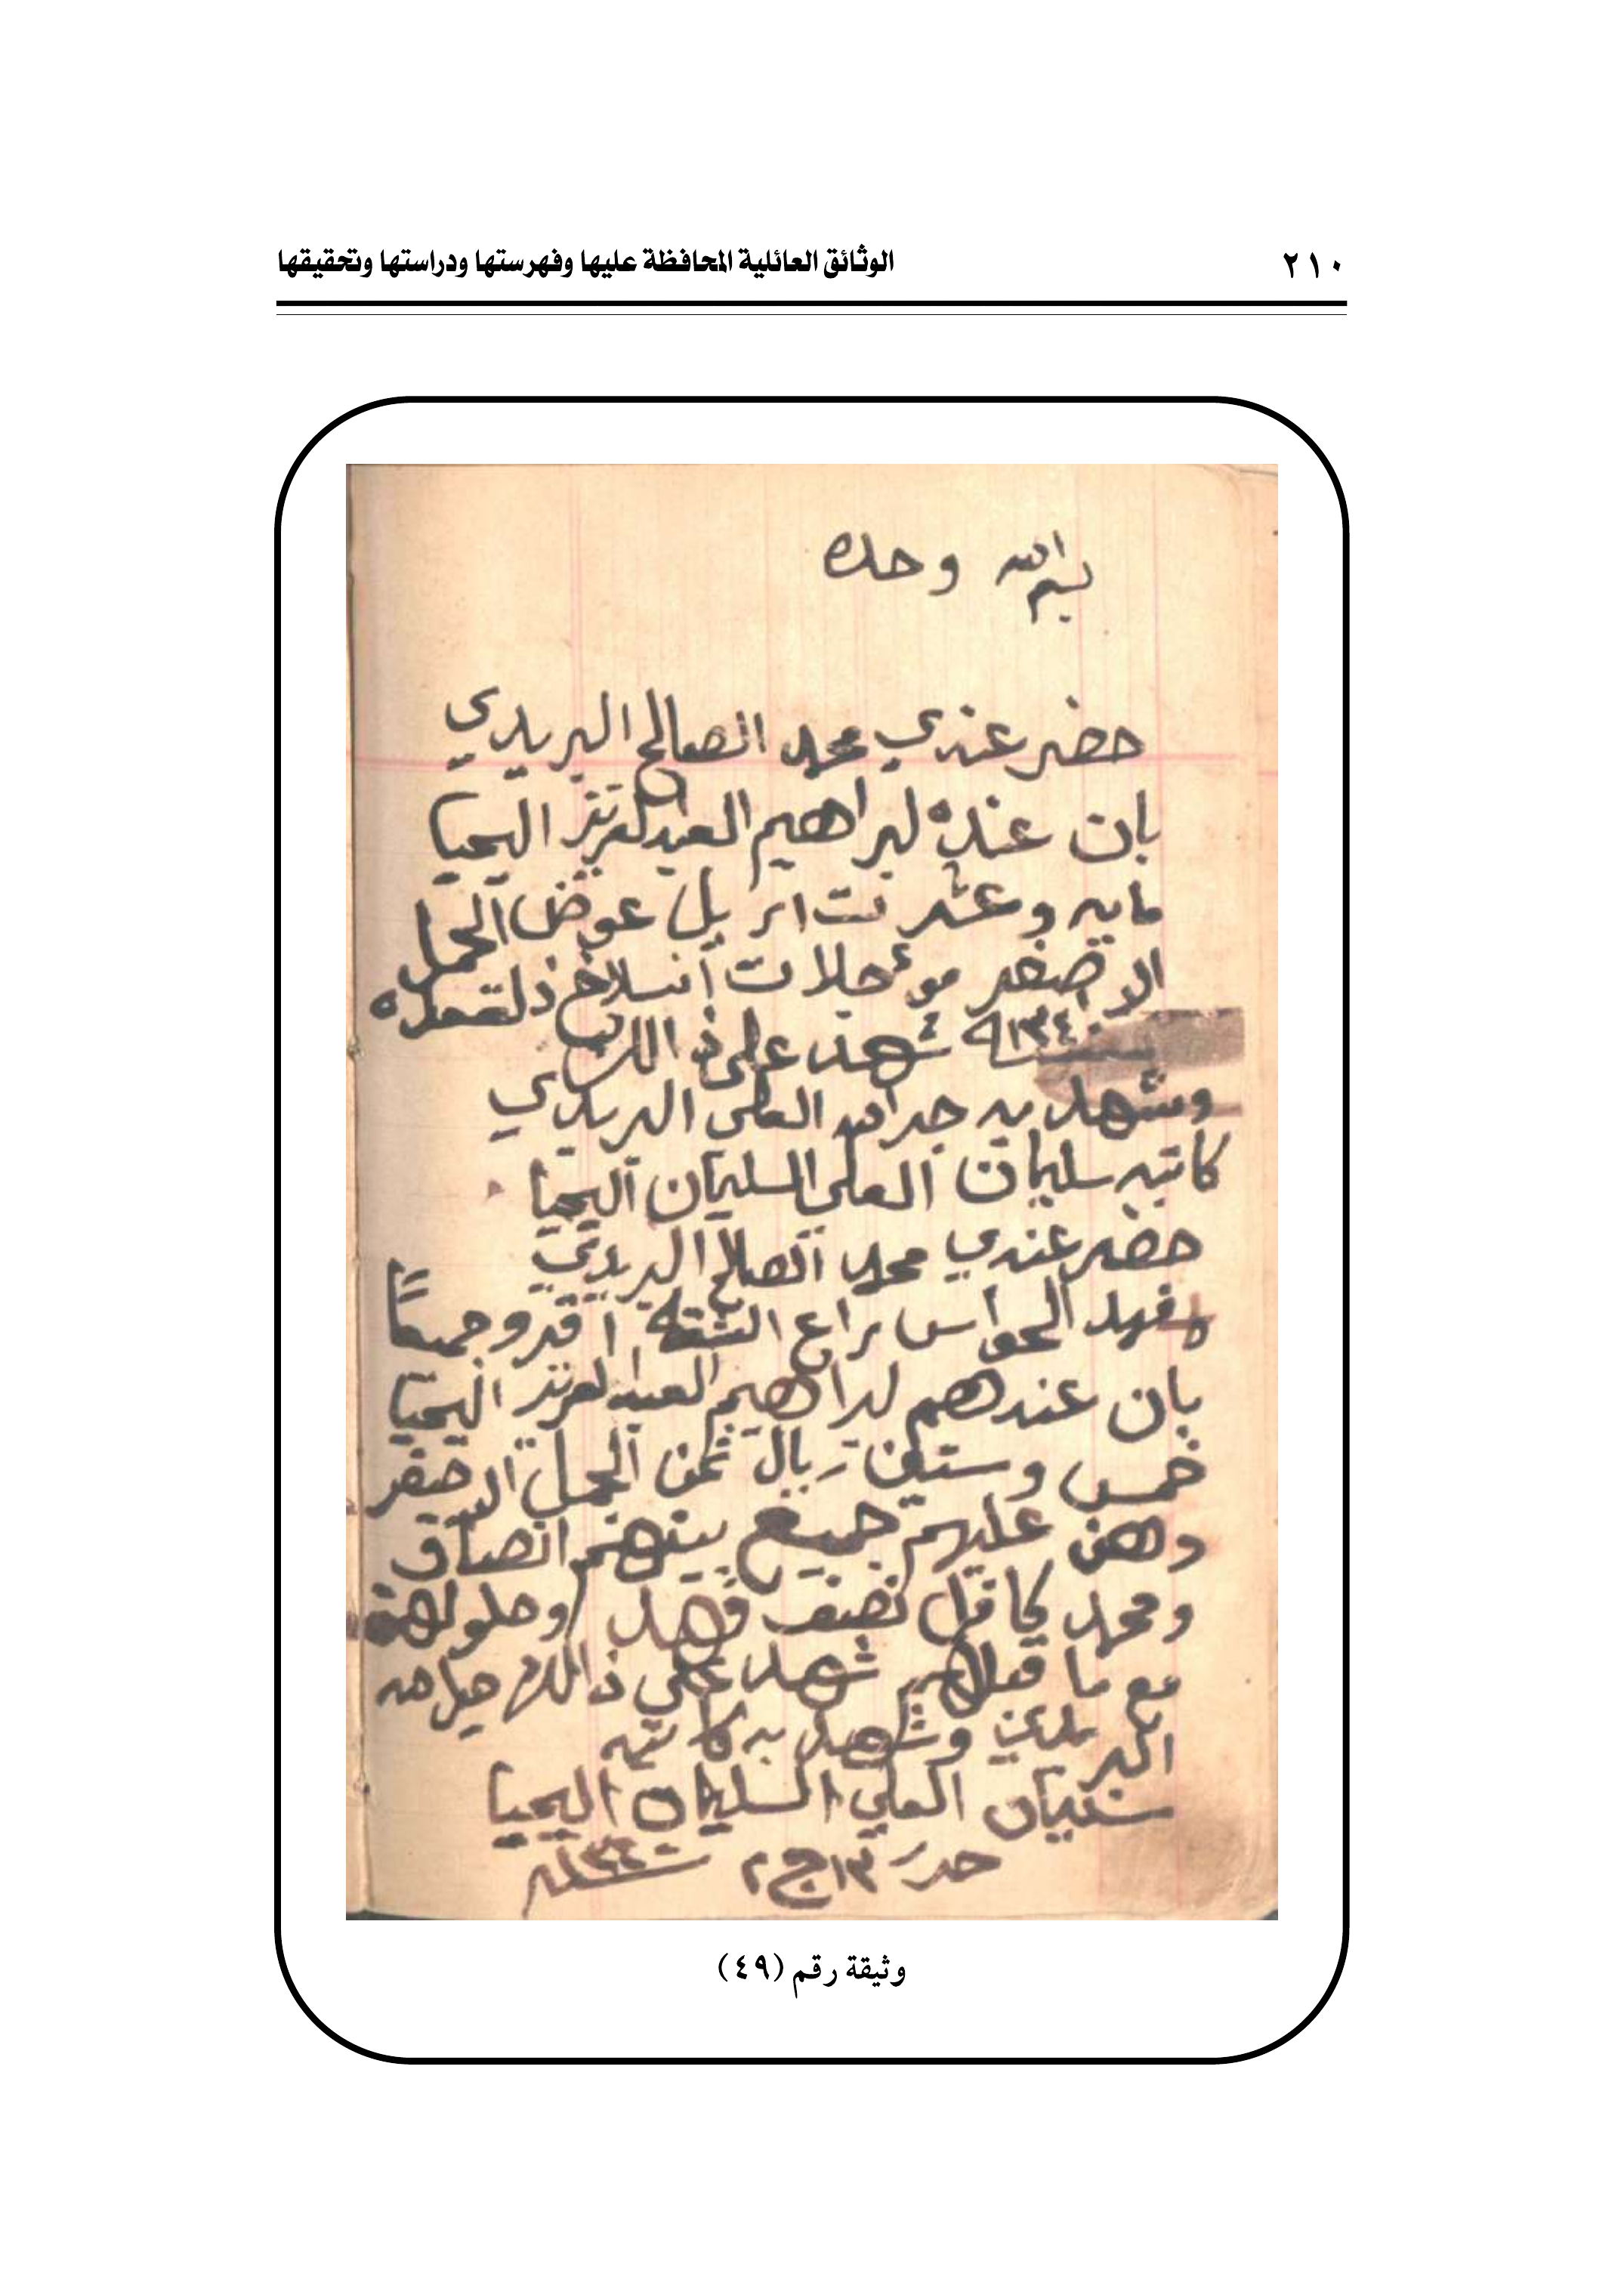 الوثائق العائلية المحافظة عليها وفهرستها ودراستها وتحقيقها
٢١٠
بسم الله وحده
حضر عندي محمد الصالح البريدي
بان عنده لبراهيم العبدلعزيز اليحيا
مايه وعشر ريل عوض الجمل
الاصفر موءجلات انسلاخ ذلقعده
سنة ١٣٤٠ شهد على
وشهد به جدالله العلي البريدي
كاتبه سليمان العلي السليمان اليحيا
حضر عندي محمد الصالح البريدي
وفهد الحواس راع الشقة اقرو جميعاً
بان عندهم لبراهيم العبدلعزيز اليحيا
خمس وستين ريال ثمن الجمل الاصفر
وهن عليهم جميع بينهم انصاف
ومحمد كافل نصف فهد وحلولهن
مع ما قبلهن شهد على ذالك
البريدي وشهد به كاتبه
سليمان العلي السليمان اليحيا
حرر ١٣ ج ٢ سنة
وثيقة رقم (٤٩)